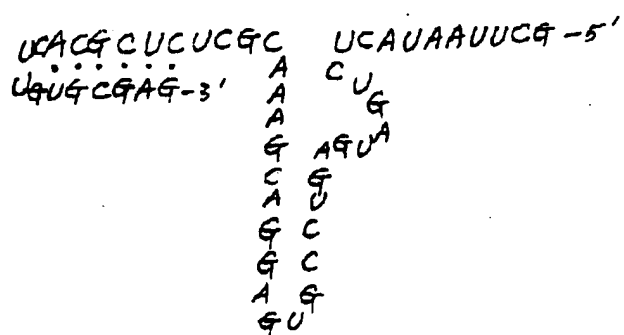 UCACGCUCUCGC UCAUAAUUCG-5'
UGUGCGAG-3'
A C
A U
A G
G A
AGU
C G
A U
G C
G C
A G
GU